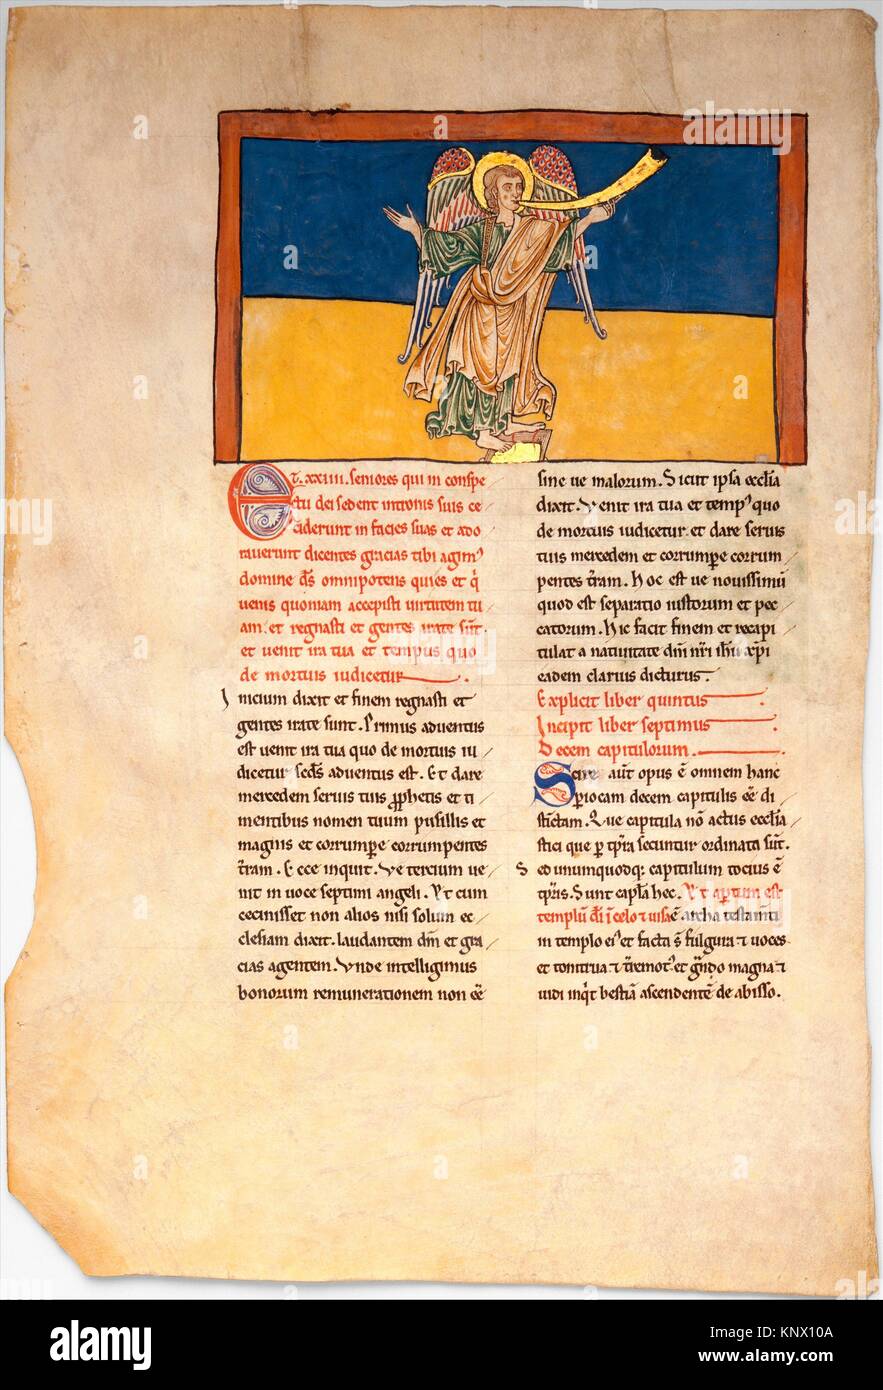 Et .xxiiii. seniores qui in conspe
ctu dei sedent in tronis suis ce
ciderunt in facies suas et ado
raverunt dicentes gracias tibi agimꝰ
domine ds̄ omnipotens qui es et q̇
venis quoniam accepisti virtutem tu
am. et regnasti et gentes irate sūt.
et venit ira tua et tempus quo
de mortuis iudicetur.
Inicium dixit et finem regnasti et
gentes irate sunt. Primus adventus
est venit ira tua quo de mortuis iu
dicetur scd̄s adventus est. Et dare
mercedem servis tuis ꝓphetis et ti
mentibus nomen tuum pusillis et
magnis et corrumꝑe corrumpentes
t̄ram. Ecce inquit. Ve tercium ve
nit in voce septimi angeli. Et cum
cecinisset non alios nisi solum ec
clesiam dixit. laudantem dm̄ et gra
cias agentem. Unde intelligimus
bonorum remunerationem non eē
sine ve malorum. Sicut ipsa eccl̄ia
dixit. Venit ira tua et tempꝰ quo
de mortuis iudicetur. et dare servis
tuis mercedem et corrumꝑe corrum
pentes t̄ram. Hoc est ve novissimū
quod est separatio iustorum et pec
catorum. Hic facit finem et recapi
tulat a nativitate dn̄i nr̄i ih̄u xp̄i
eadem clarius dicturus.
Explicit liber quintus
Incipit liber septimus
Decem capitulorum.
Scire aūt opus ē omnem hanc
ꝑiocam decem capitulis eē di
stīctam. Que capitula nō actus eccl̄ia
stici que ꝑ tp̄ra secuntur ordinata sūt.
Sed unumquodqꝫ capitulum tocius ē
tp̄ris. Sunt capl̄a hec. Et aꝑtum est
templū dī ī celo ⁊ visa ē archa testam̄ti
in templo eiꝰ et facta s̄ fulgura ⁊ voces
et tonitrua ⁊ t̄remotꝰ et g̃ndo magna ⁊
vidi inq̇t bestiā ascendentē de abisso.
alamy
Image ID: KNX10A
www.alamy.com